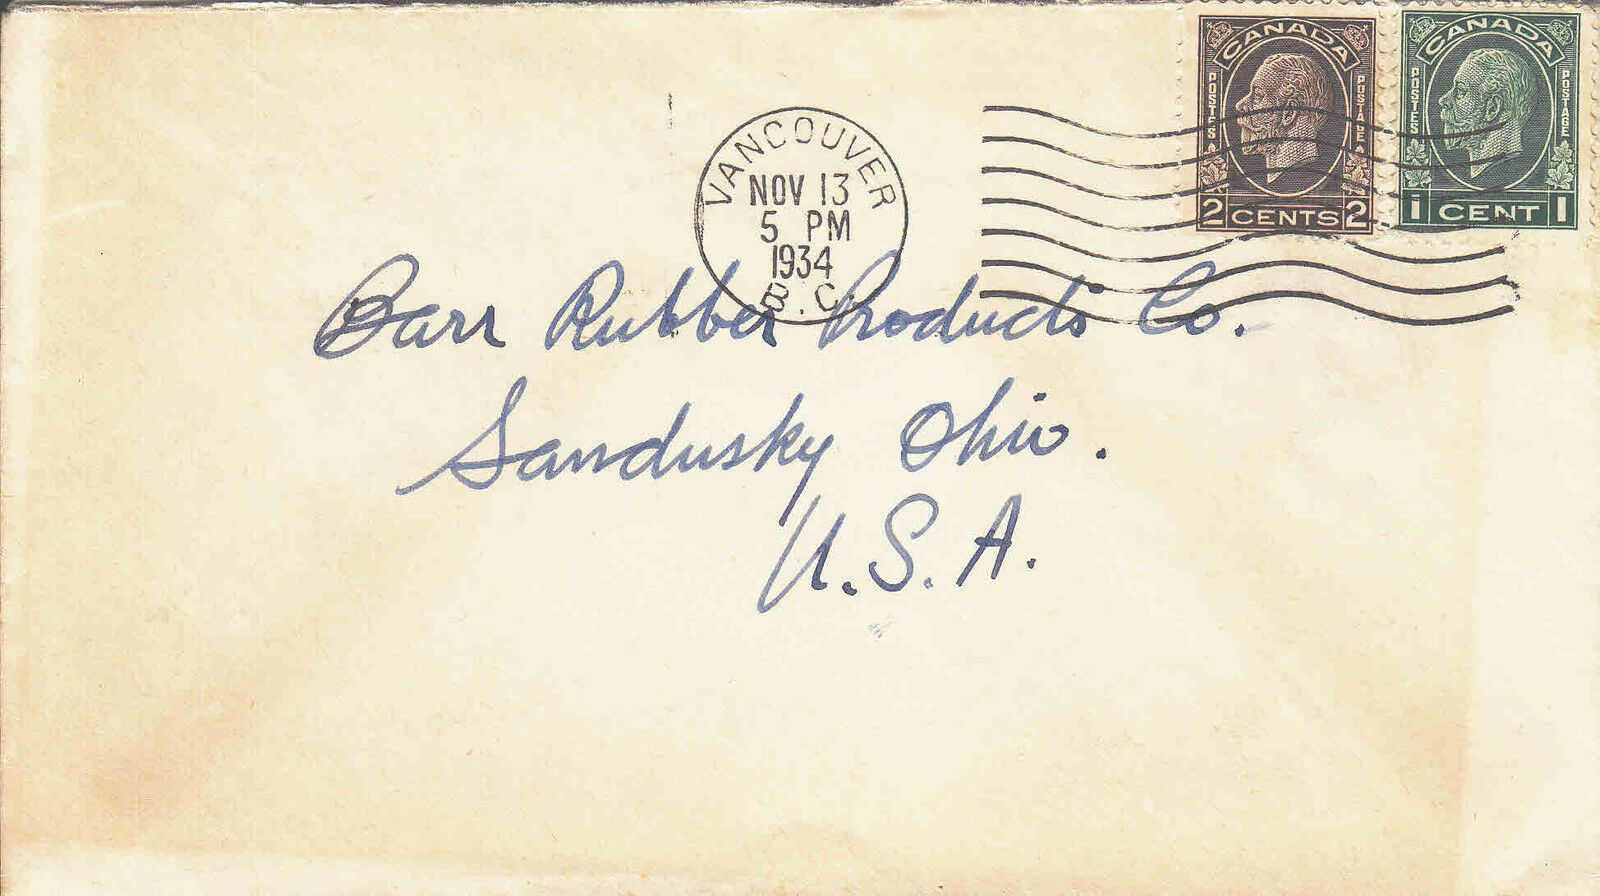 CANADA
POSTES
POSTAGE
2 CENTS 2
CANADA
POSTES
POSTAGE
1 CENT 1
VANCOUVER
NOV 13
5 PM
1934
B.C.
Barr Rubber Products Co.
Sandusky Ohio.
U.S.A.